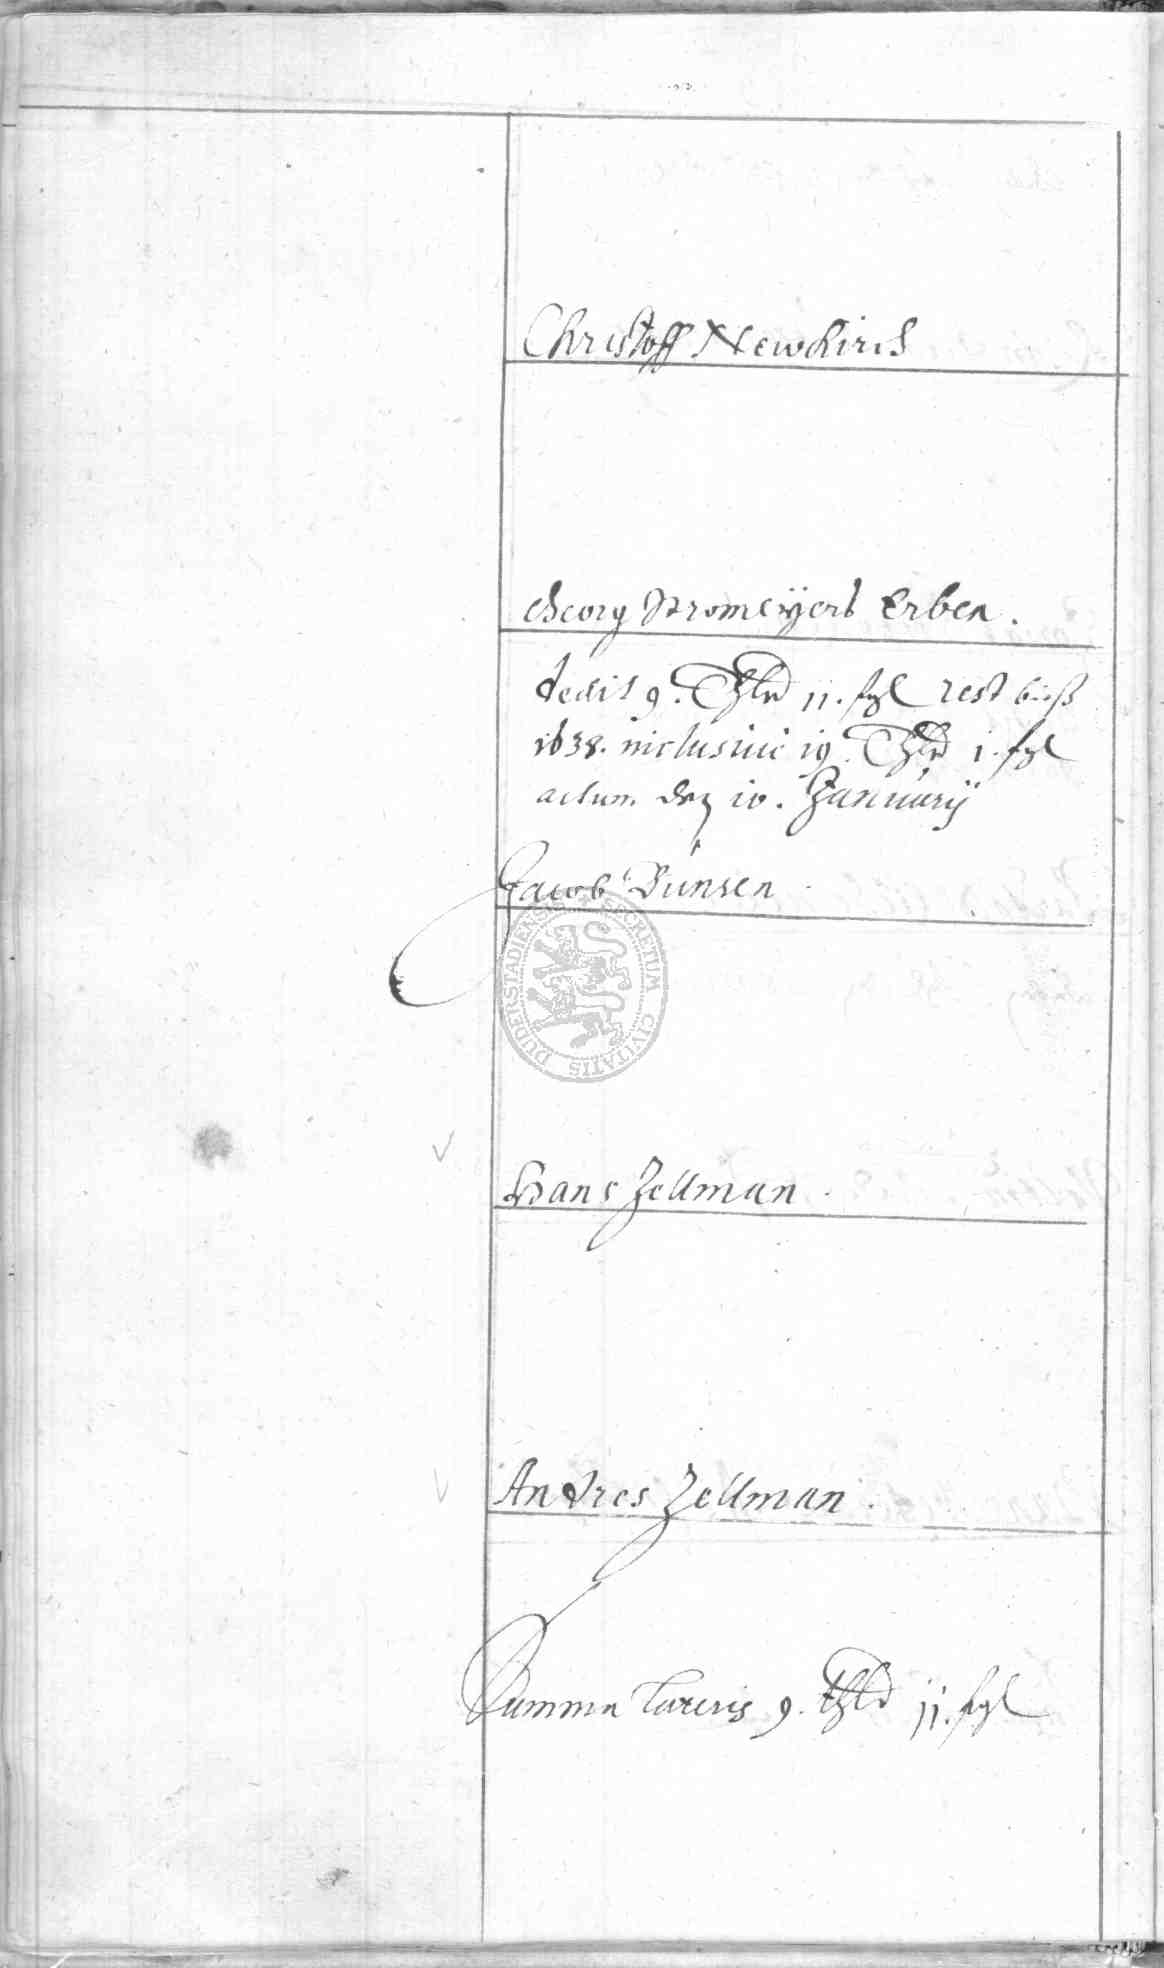 Christoff Newkirch
Georg Stromeyers Erben.
dedit 9. Thlr 11. sgl rest biß
1638. inclusiue 19. Thlr 1. sgl
actum den 10. Januarij
Jacob Bunsen
SECRETUM CIVITATIS DUDERSTADIENSIS
Hans Zellman.
Andres Zellman.
Summa lateris 9. thlr 11. sgl